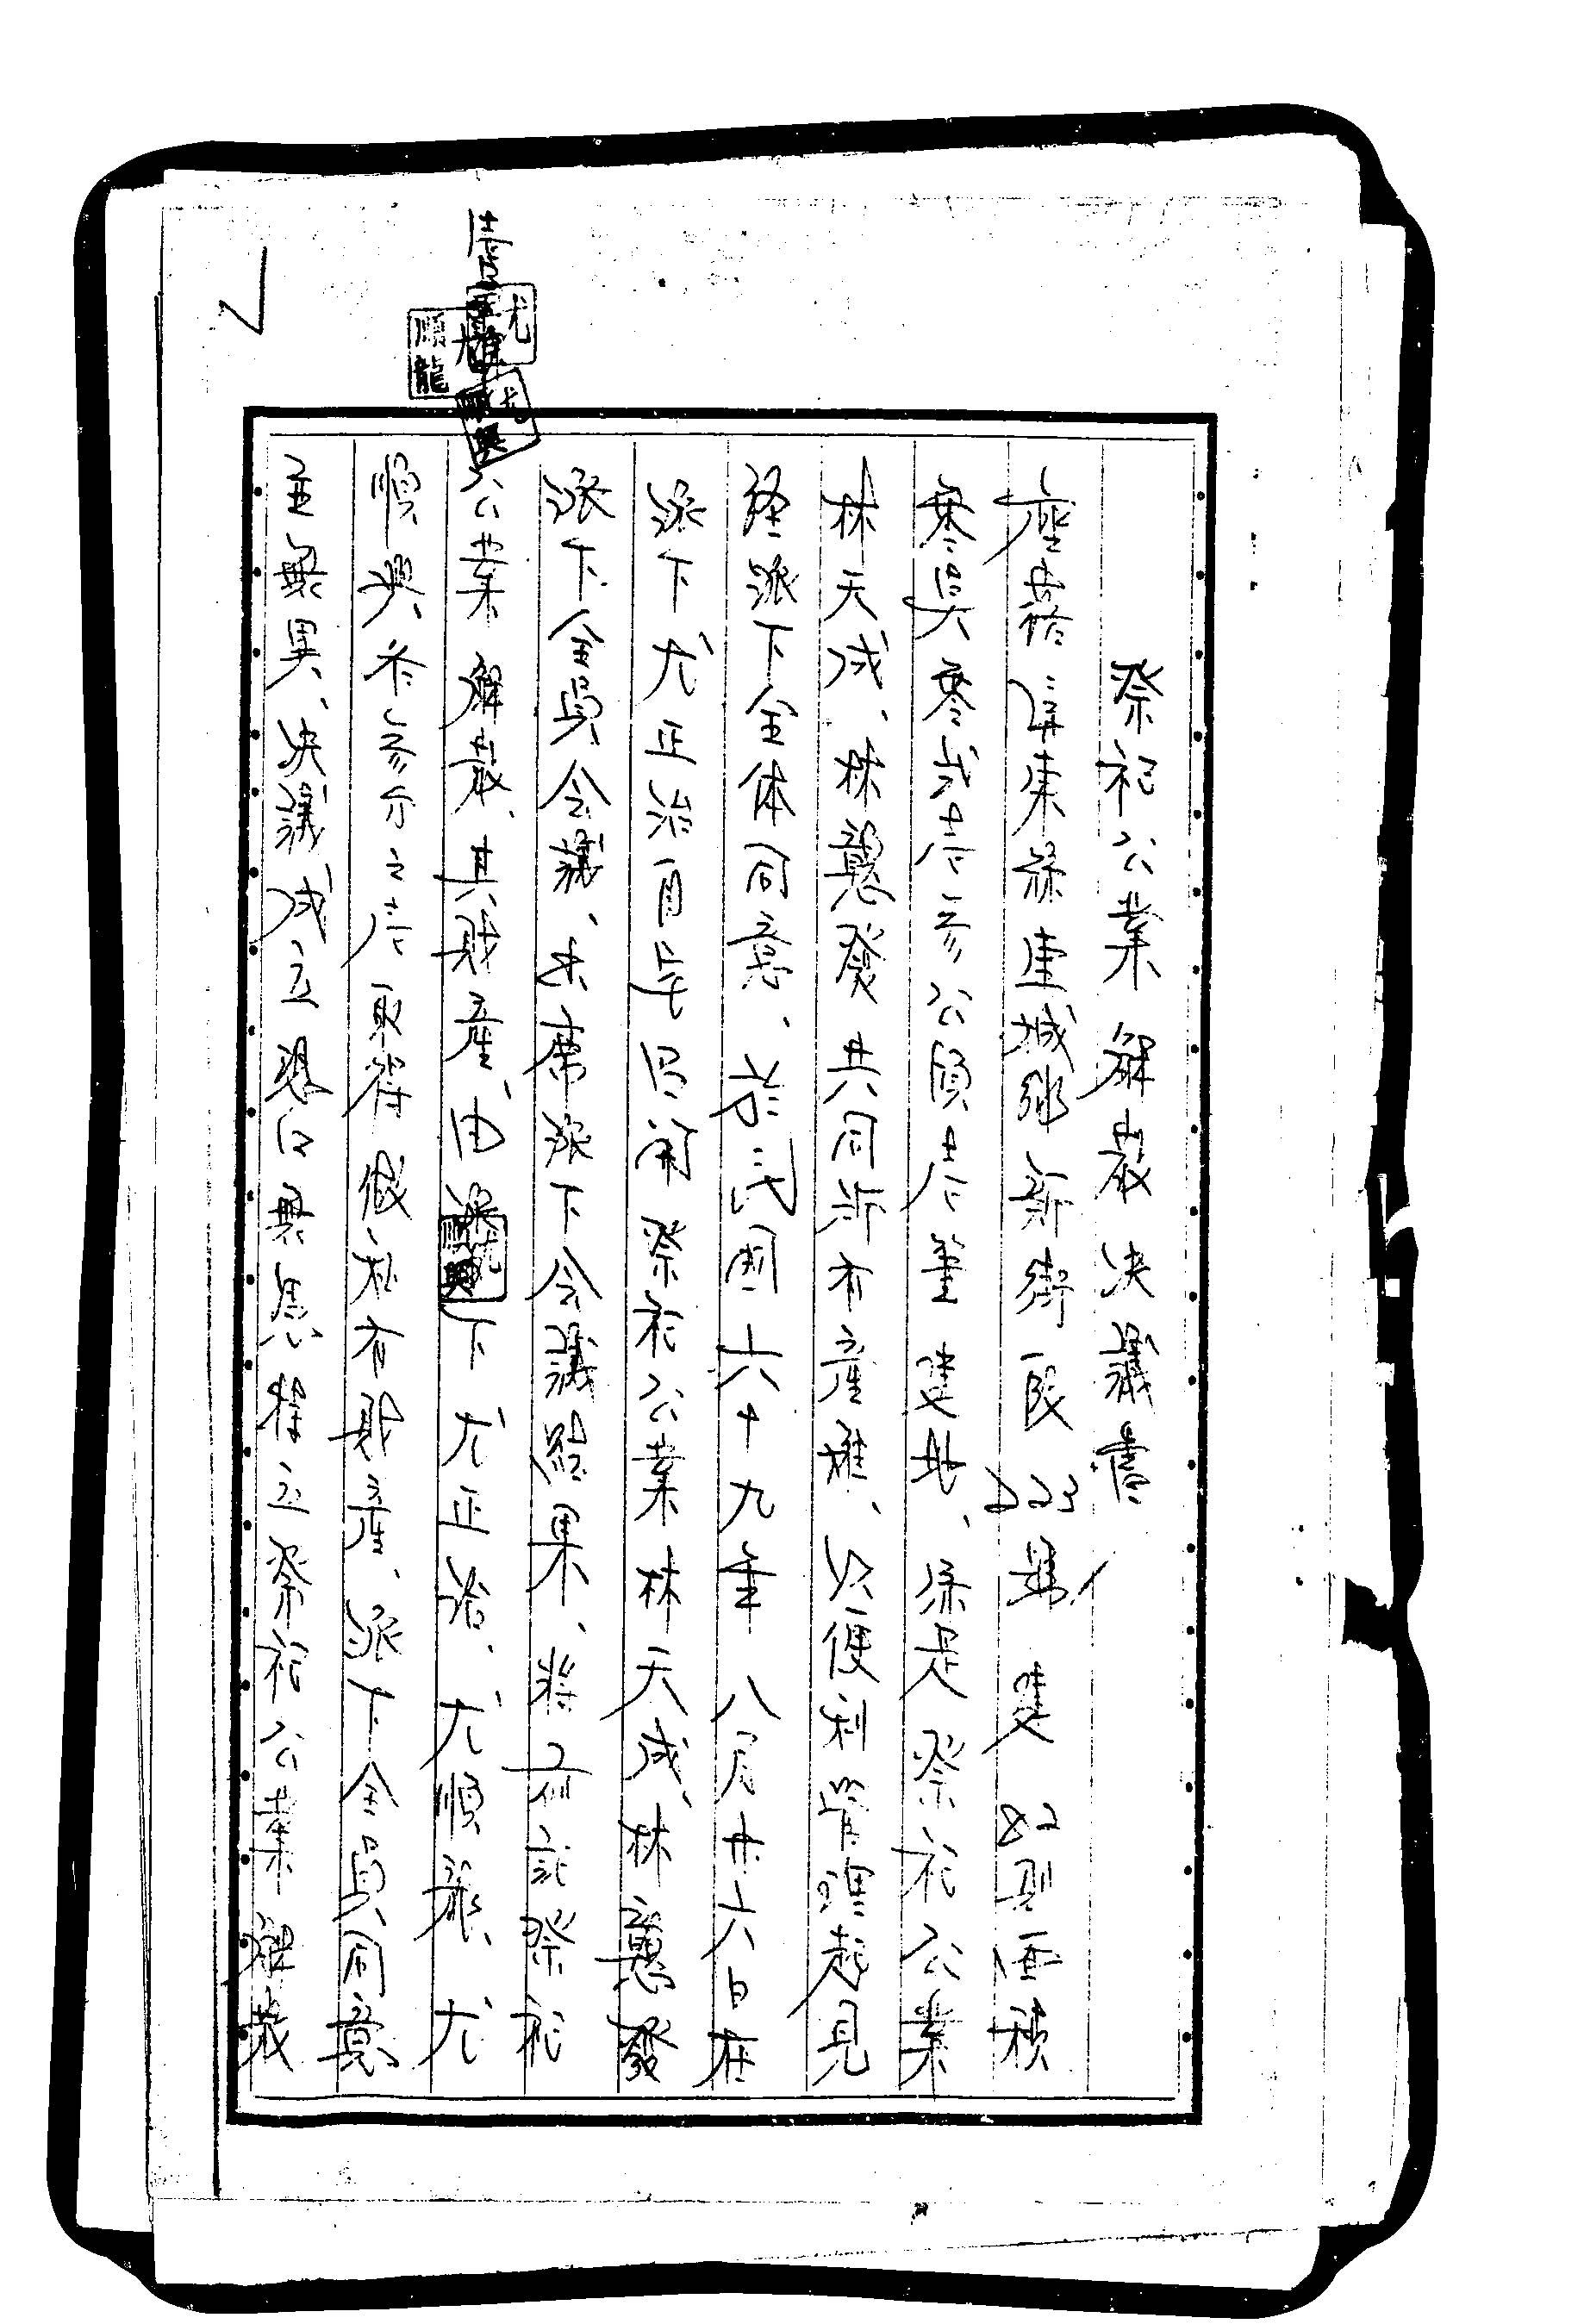 祭祀公業解散決議書
座落屏東縣車城鄉新街段223號建82則面積
零貝零貳壹參公頃壹筆建地、係是祭祀公業
林天成、林懿發共同所有產權、以便利管理起見
經派下全体同意、於民國六十九年八月廿六日在
派下尤正治自宅召開祭祀公業林天成、林懿發
派下全員会議、出席派下会議結果、將前記祭祀
公業解散、其財產、由派下尤正治、尤順龍、尤
順興各參分之壹取得做私有財產、派下全員同意
並無異、決議成立恐口無憑特立祭祀公業解散
尤順龍
尤順興